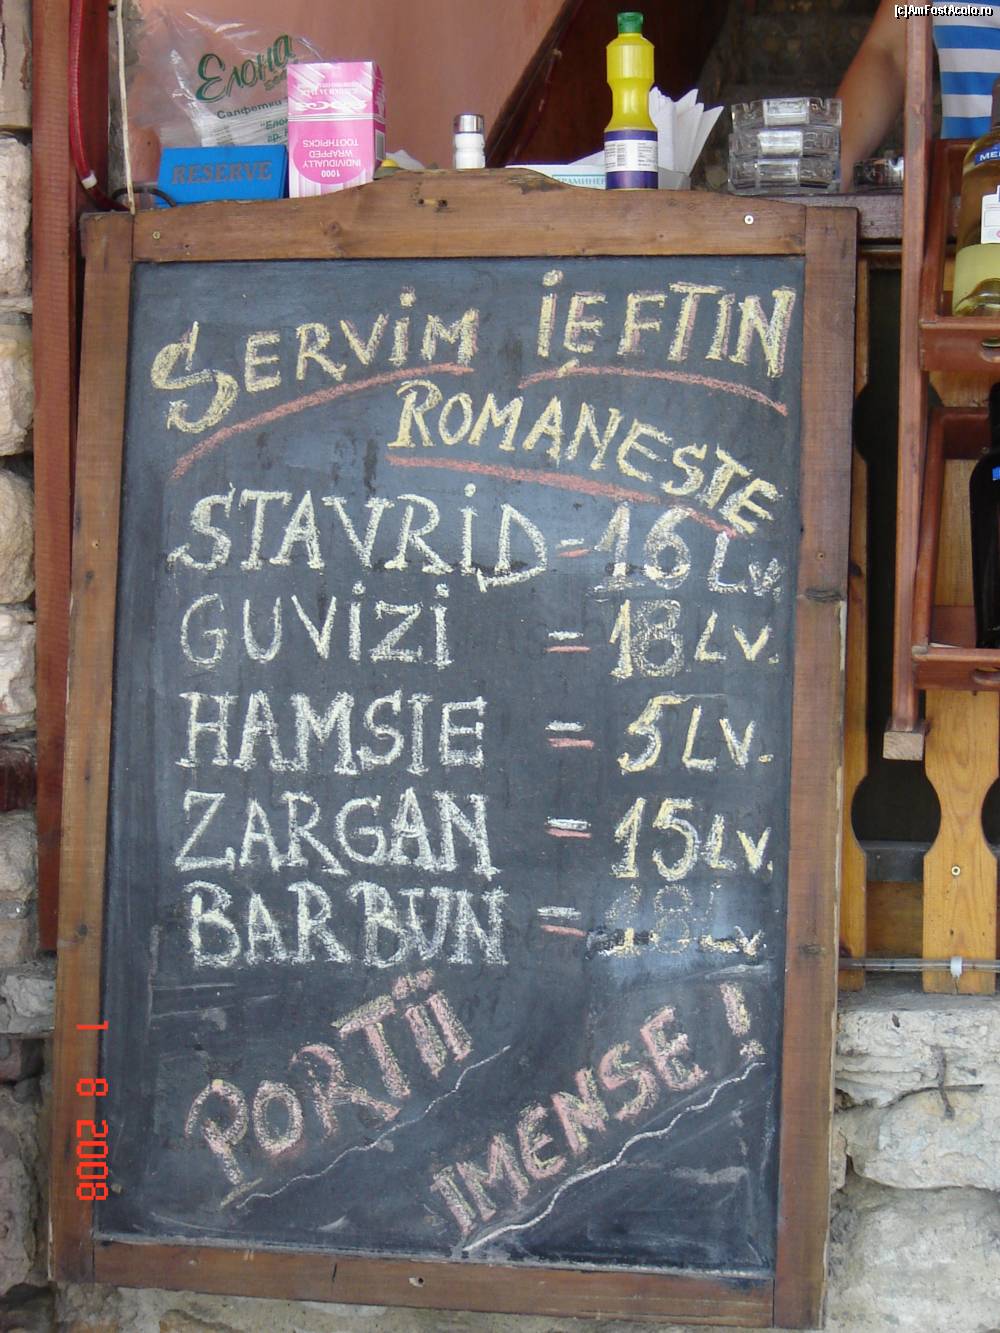 [c]AmFostAcolo.ro
Елона
Салфетки
"Елон
гр.
RESERVE
1000
INDIVIDUALLY
WRAPPED
TOOTHPICKS
SERVIM IEFTIN
ROMANESTE
STAVRID = 16 Lv.
GUVIZI = 18 LV.
HAMSIE = 5 LV.
ZARGAN = 15 LV.
BARBUN = 18 Lv.
PORTII
IMENSE !
1 8 2008